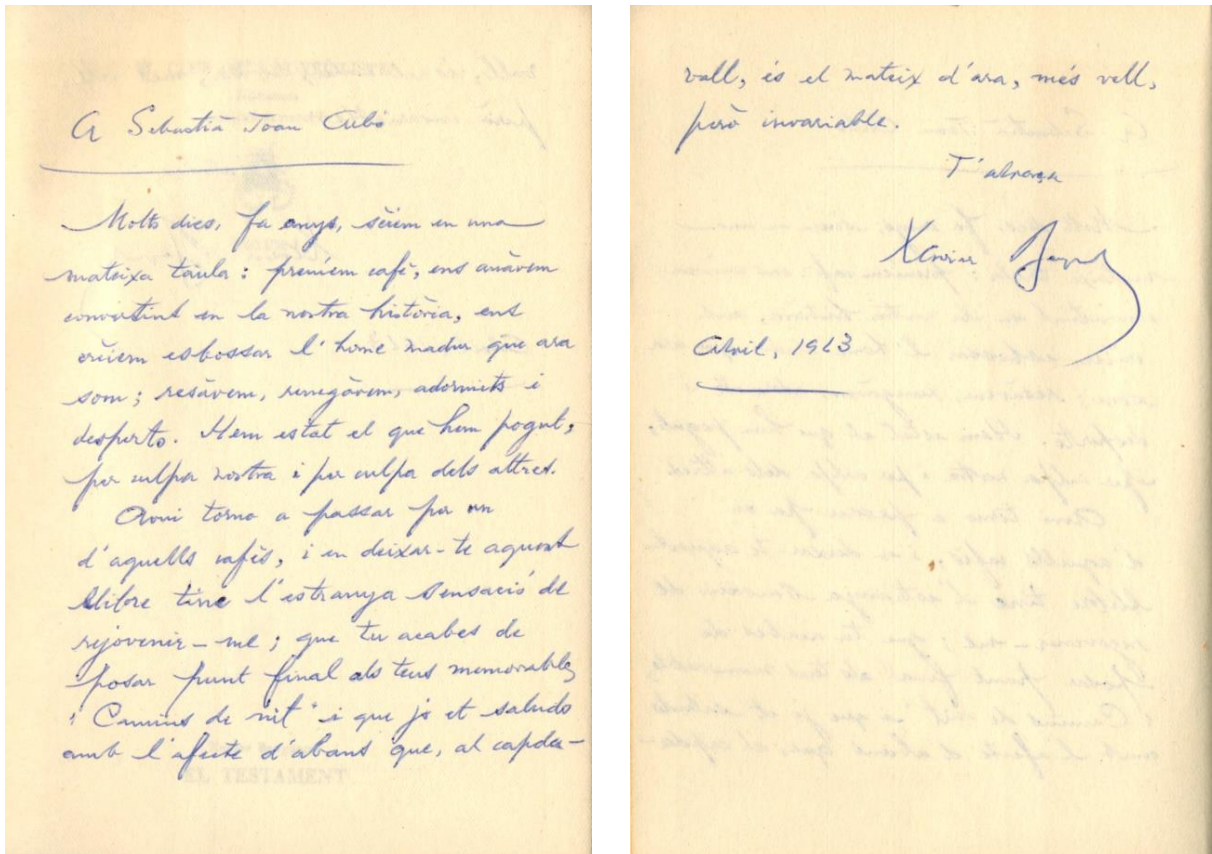 A Sebastià Joan Arbó
Molts dies, fa anys, sèiem en una
mateixa taula: preníem cafè, ens anàvem
convertint en la nostra història, ens
crèiem esbossar l'home madur que ara
som; resàvem, renegàvem, adormits i
desperts. Hem estat el que hem pogut,
per culpa nostra i per culpa dels altres.
Avui torno a passar per un
d'aquells cafès, i en deixar-te aquest
llibre tinc l'estranya sensació de
rejovenir-me; que tu acabes de
posar punt final als teus memorables
"Camins de nit" i que jo et saludo
amb l'afecte d'abans que, al capda-
EL TESTAMENT
vall, és el mateix d'ara, més vell,
però invariable.
T'abraça
Xavier Benguerel
Abril, 1963